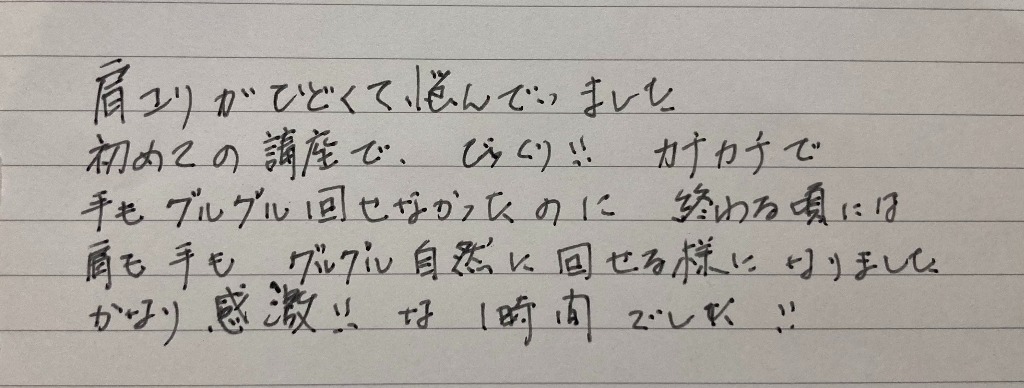 肩コリがひどくて、悩んでいました
初めての講座で、びっくり!! カチカチで
手もグルグル回せなかったのに 終わる頃には
肩も手も グルグル自然に回せる様になりました
かなり感激!! な 1時間でした!!